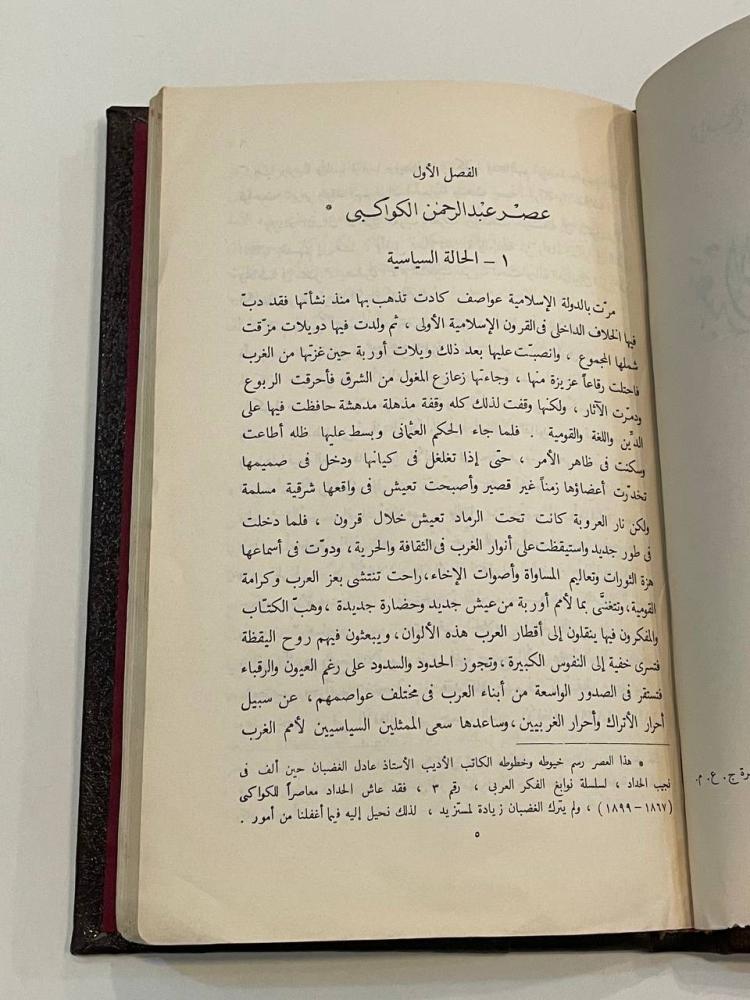 الفصل الأول
عصر عبد الرحمن الكواكبى *
١ - الحالة السياسية
مرّت بالدولة الإسلامية عواصف كادت تذهب بها منذ نشأتها فقد دبّ
فيها الخلاف الداخلى فى القرون الإسلامية الأولى ، ثم ولدت فيها دويلات مزّقت
شملها المجموع ، وانصبّت عليها بعد ذلك ويلات أوربة حين غزتها من الغرب
فاحتلت رقاعاً عزيزة منها ، وجاءتها زعازع المغول من الشرق فأحرقت الربوع
ودمرّت الآثار ، ولكنها وقفت لذلك كله وقفة مذهلة مدهشة حافظت فيها على
الدِّين واللغة والقومية . فلما جاء الحكم العثمانى وبسط عليها ظله أطاعت
وسكنت فى ظاهر الأمر ، حتّى إذا تغلغل فى كيانها ودخل فى صميمها
تخدّرت أعضاؤها زمناً غير قصير وأصبحت تعيش فى واقعها شرقية مسلمة
ولكن نار العروبة كانت تحت الرماد تعيش خلال قرون ، فلما دخلت
فى طور جديد واستيقظت على أنوار الغرب فى الثقافة والحرية ، ودوّت فى أسماعها
هزة الثورات وتعاليم المساواة وأصوات الإخاء، راحت تنتشى بعز العرب وكرامة
القومية، وتتغنَّى بما لأمم أوربة من عيش جديد وحضارة جديدة ، وهبّ الكتّاب
والمفكرون فيها ينقلون إلى أقطار العرب هذه الألوان، ويبعثون فيهم روح اليقظة
فتسرى خفية إلى النفوس الكبيرة، وتجوز الحدود والسدود على رغم العيون والرقباء
فتستقر فى الصدور الواسعة من أبناء العرب فى مختلف عواصمهم، عن سبيل
أحرار الأتراك وأحرار الغربيين، وساعدها سعى الممثلين السياسيين لأمم الغرب
* هذا العصر رسم خيوطه وخطوطه الكاتب الأديب الأستاذ عادل الغضبان حين ألف فى
نجيب الحداد ، لسلسلة نوابغ الفكر العربى ، رقم ٣ ، فقد عاش الحداد معاصراً للكواكبى
(١٨٦٧ – ١٨٩٩) ، ولم يترك الغضبان زيادة لمستزيد ، لذلك نحيل إليه فيما أغفلنا من أمور .
٥
ج . ع . م.